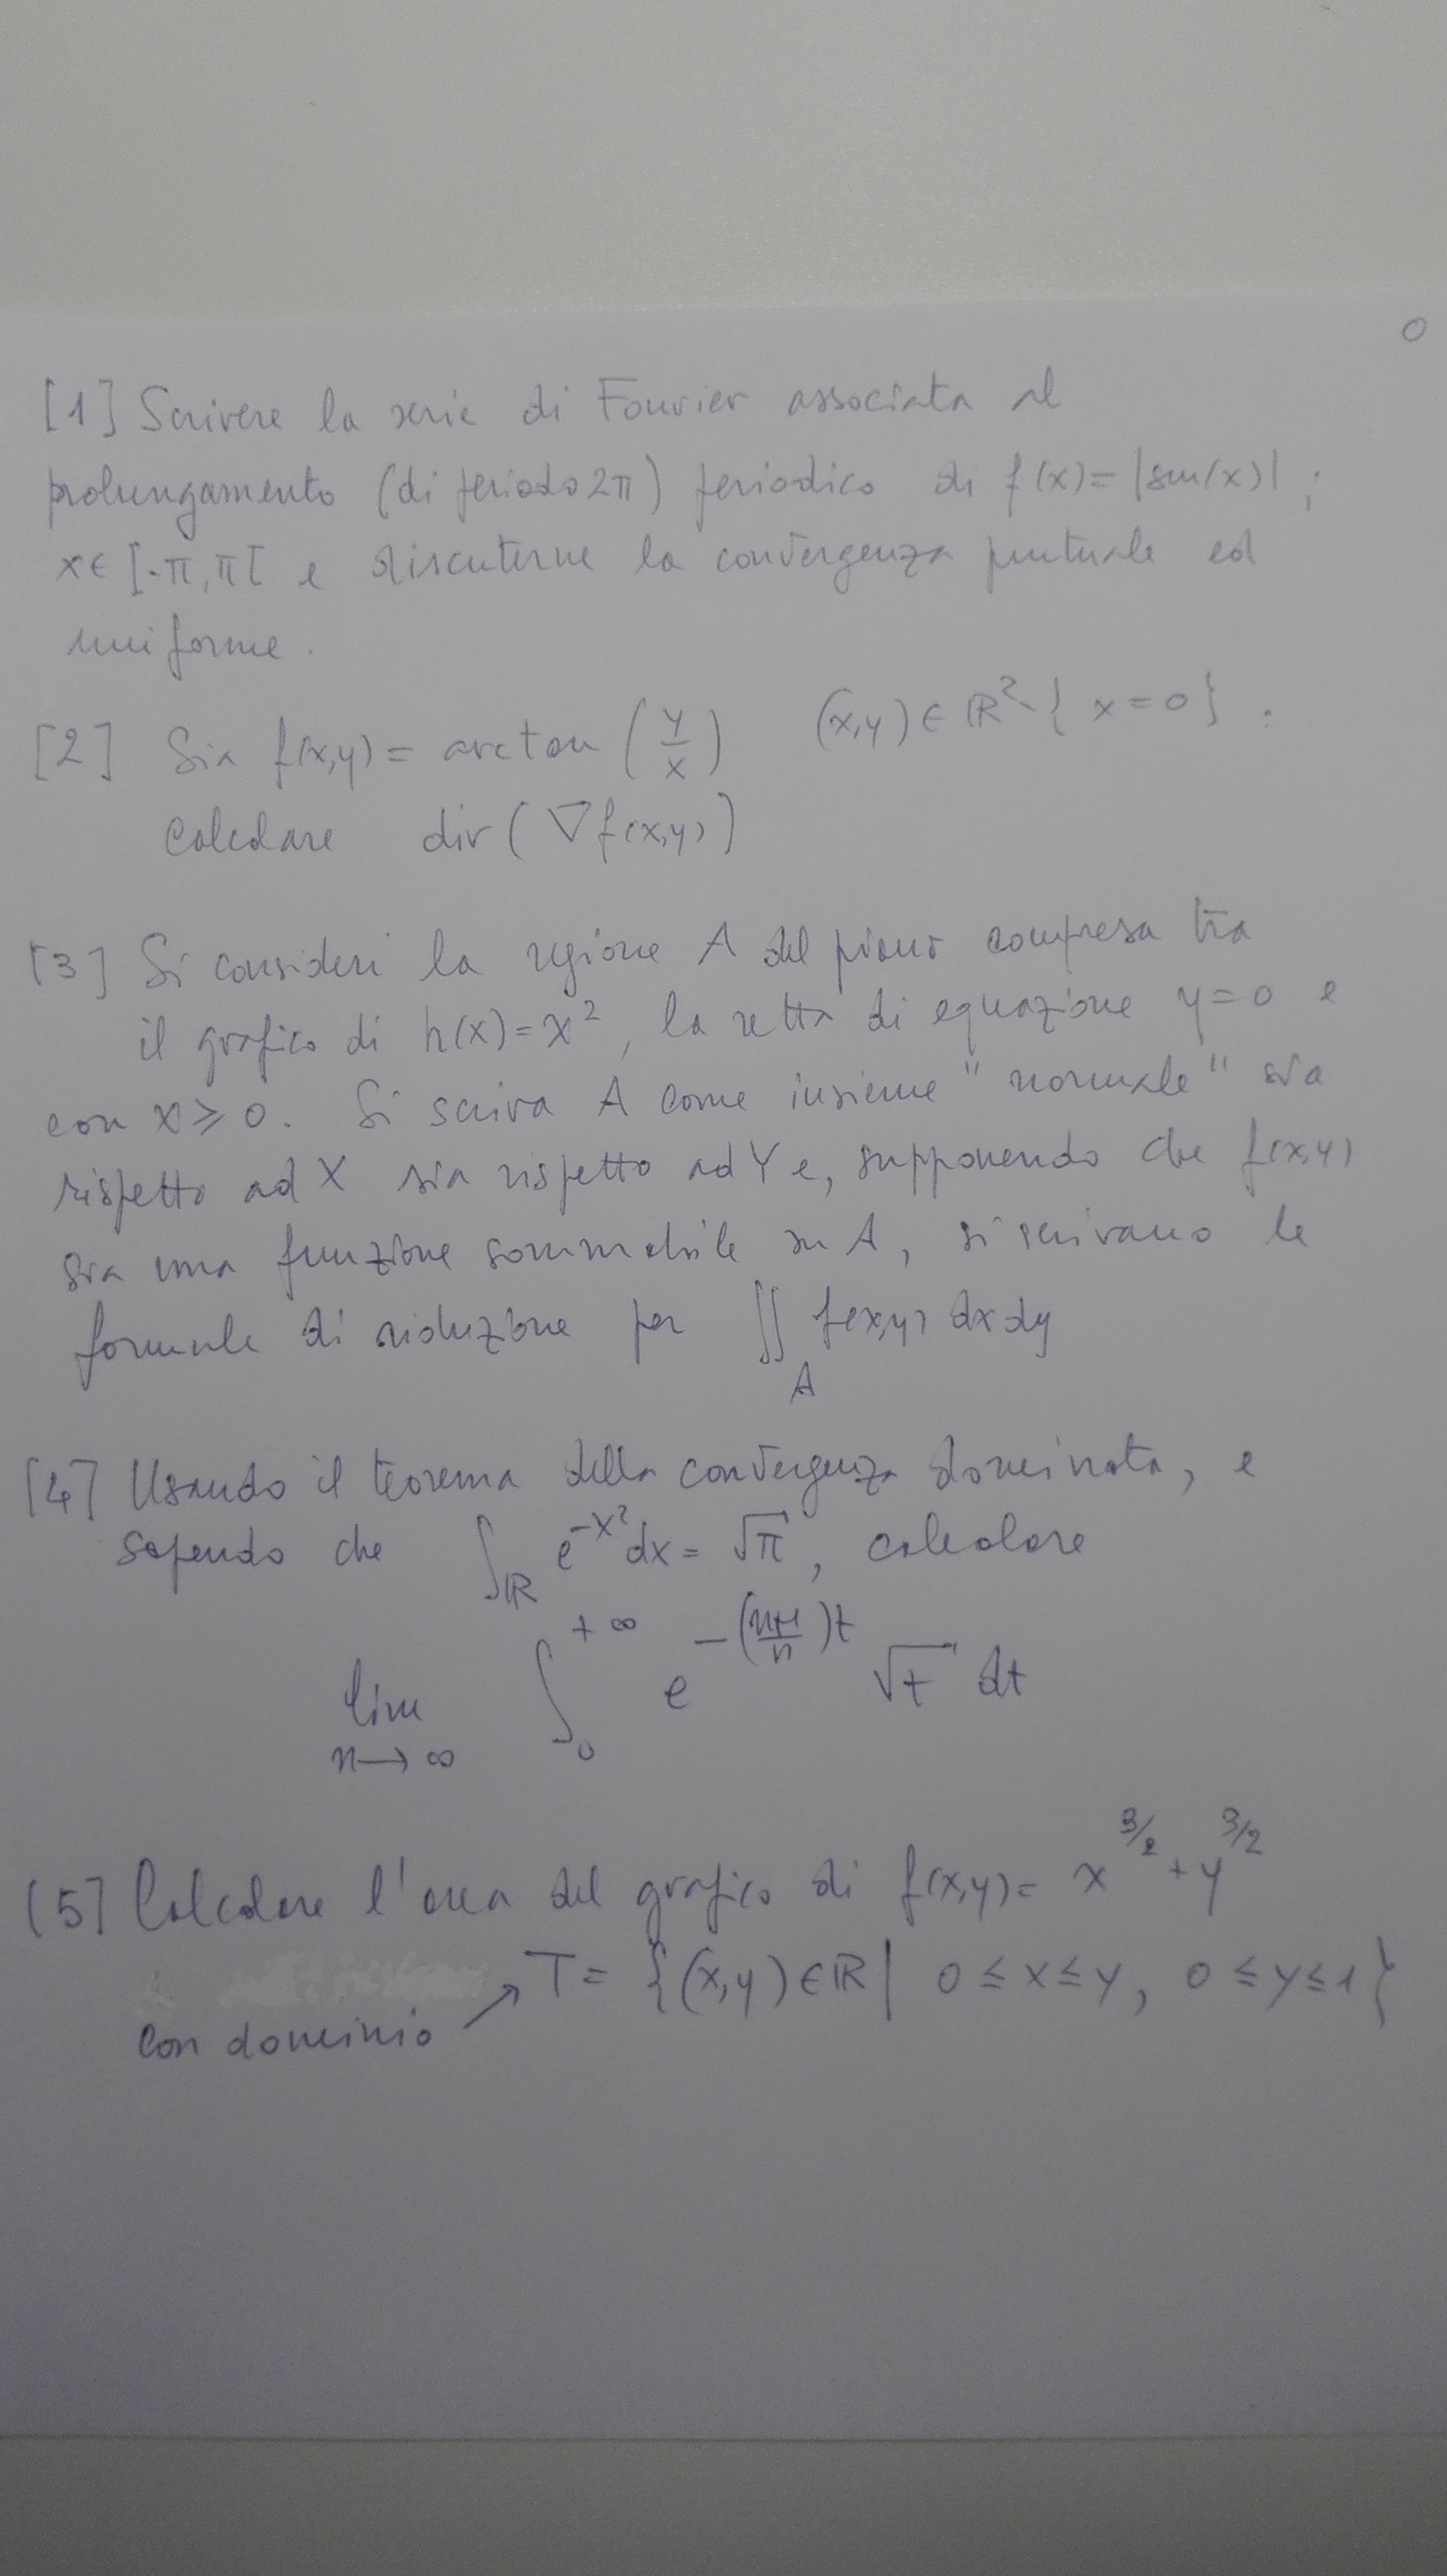 [1] Scrivere la serie di Fourier associata al
prolungamento (di periodo 2π) periodico di f(x)=|sin(x)|;
x∈[-π,π[ e discuterne la convergenza puntuale ed
uniforme.
[2] Sia f(x,y)= arctan (y/x) (x,y)∈ℝ²\{x=0}.
Calcolare div(∇f(x,y))
[3] Si consideri la regione A del piano compresa tra
il grafico di h(x)=x², la retta di equazione y=0 e
con x≥0. Si scriva A come insieme "normale" sia
rispetto ad X sia rispetto ad Y e, supponendo che f(x,y)
sia una funzione sommabile su A, si scrivano le
formule di riduzione per ∬_A f(x,y) dxdy
[4] Usando il teorema della convergenza dominata, e
sapendo che ∫_ℝ e^{-x²}dx=√π, calcolare
lim_{n→∞} ∫_0^{+∞} e^{-((n+1)/n)t} √t dt
[5] Calcolare l'area del grafico di f(x,y)= x^{3/2}+y^{3/2}
T= {(x,y)∈ℝ| 0≤x≤y, 0≤y≤1}
con dominio